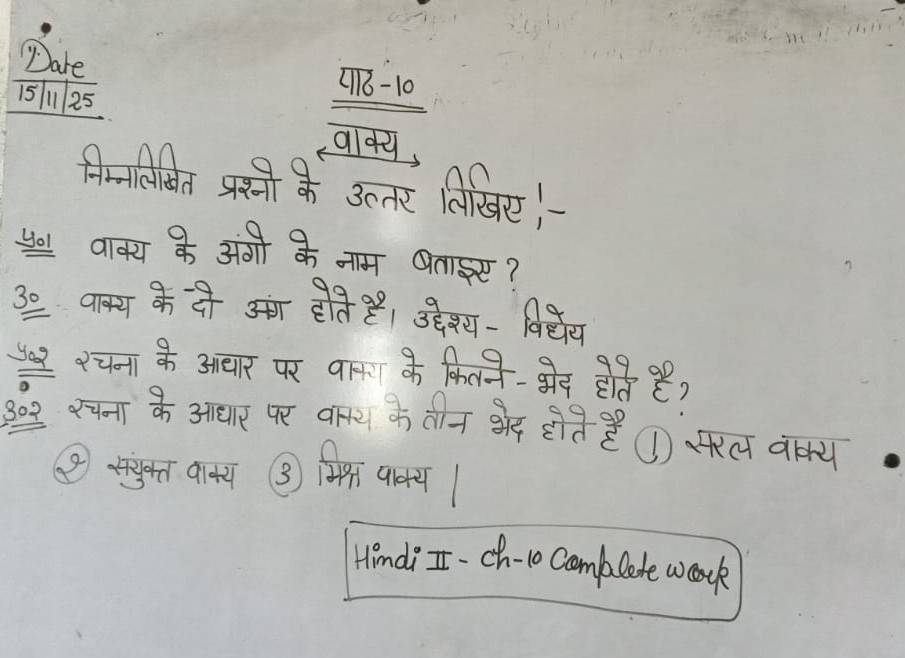 Date
15/11/25
पाठ-10
वाक्य
निम्नलिखित प्रश्नो के उत्तर लिखिए!-
प्र०१ वाक्य के अंगो के नाम बताइए?
उ० वाक्य के दो अंग होते है। उद्देश्य - विधेय
प्र०२ रचना के आधार पर वाक्य के कितने - भेद होते है?
उ०२ रचना के आधार पर वाक्य के तीन भेद होते है ① सरल वाक्य
② संयुक्त वाक्य ③ मिश्र वाक्य |
Hindi II - Ch-10 Complete work